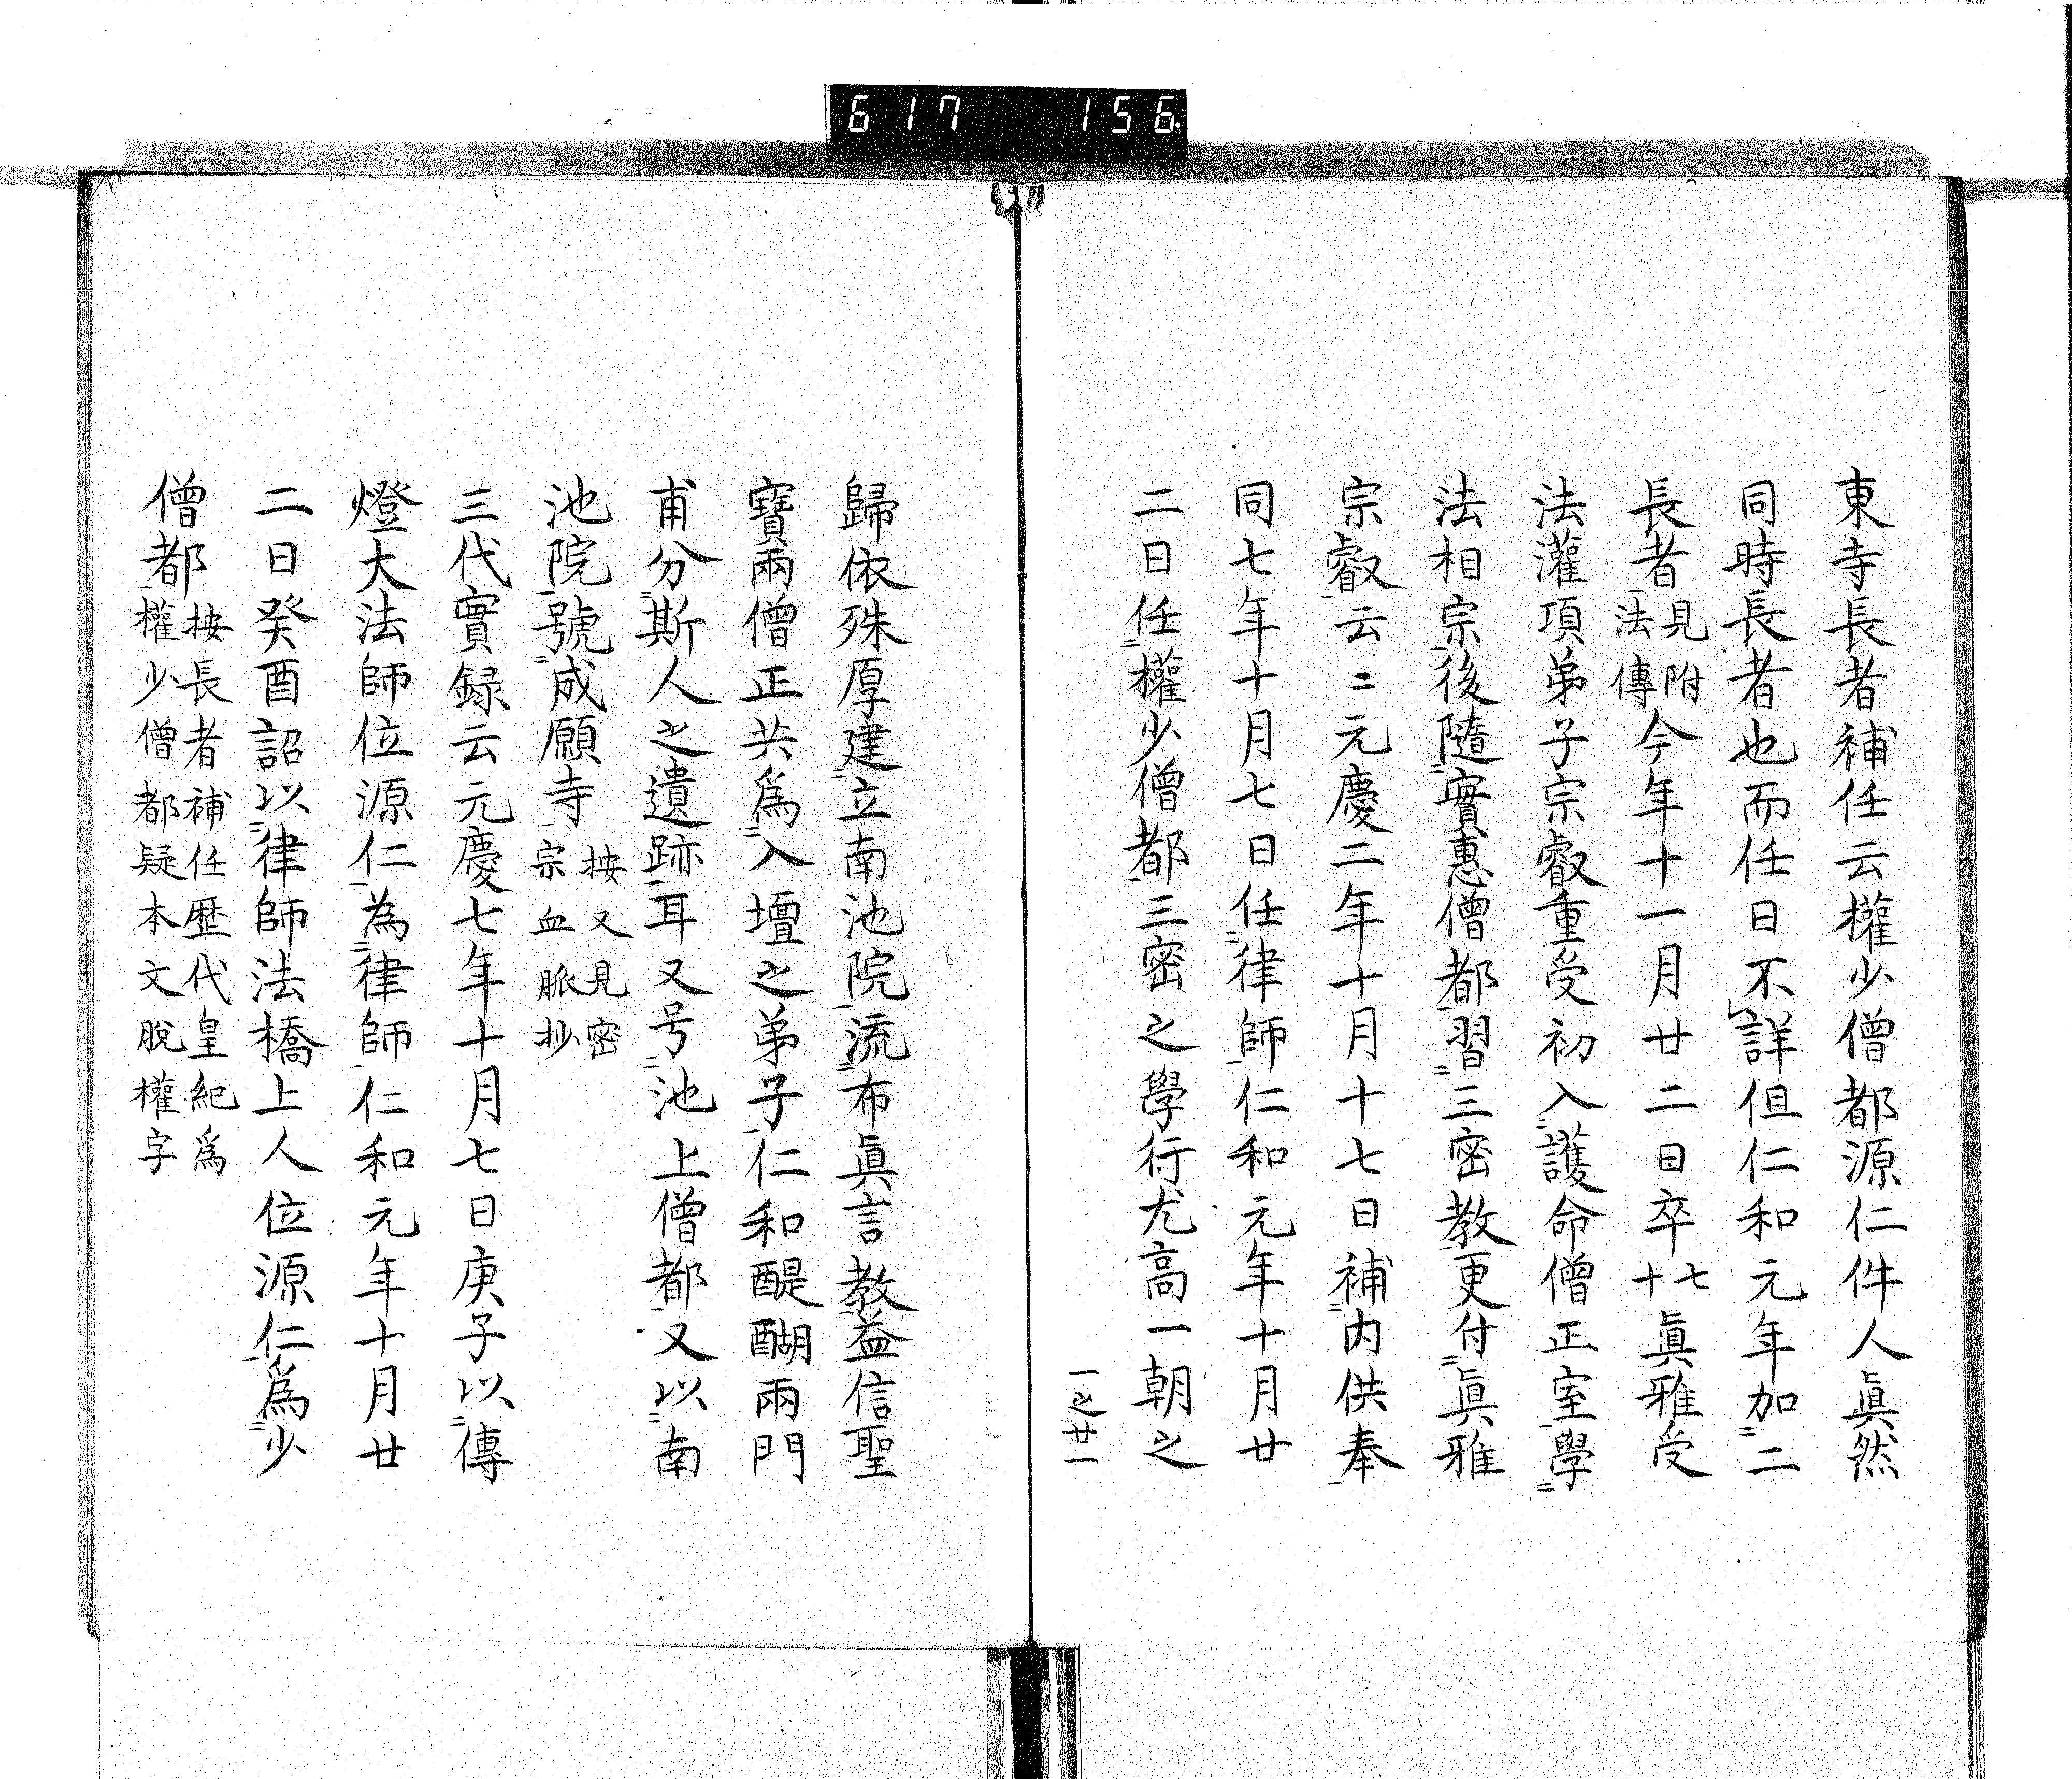 617 156
東寺長者補任云權少僧都源仁件人眞然
同時長者也而任日不詳但仁和元年加二
長者見附法傳今年十一月廿二日卒七十眞雅受
法灌項弟子宗叡重受初入護命僧正室學
法相宗後隨實惠僧都習三密教更付眞雅
宗叡云〻元慶二年十月十七日補内供奉
同七年十月七日任律師仁和元年十月廿
二日任權少僧都三密之學行尤高一朝之
一之廿一
歸依殊厚建立南池院流布眞言教益信聖
寶兩僧正共爲入壇之弟子仁和醍醐兩門
甫分斯人之遺跡耳又号池上僧都又以南
池院號成願寺按又見密宗血脈抄
三代實録云元慶七年十月七日庚子以傳
燈大法師位源仁為律師仁和元年十月廿
二日癸酉詔以律師法橋上人位源仁爲少
僧都按長者補任歴代皇紀爲權少僧都疑本文脫權字